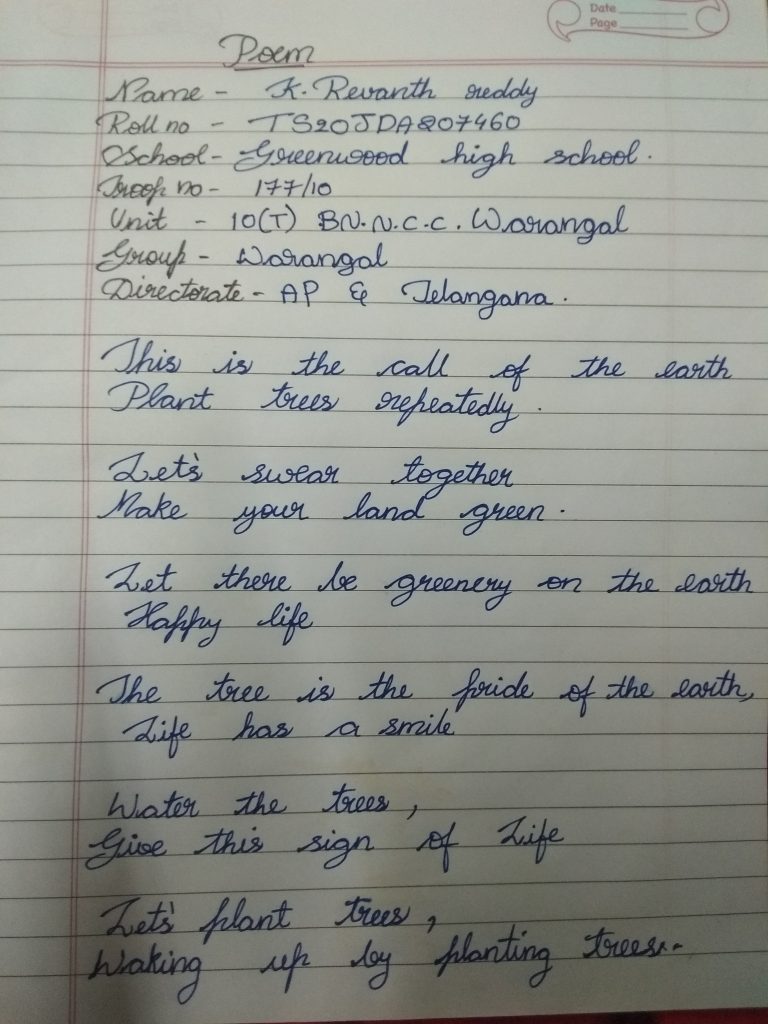 Date
Page
Poem
Name - K. Revanth reddy
Roll no - TS20JDA207460
School - Greenwood high school.
Troop no - 177/10
Unit - 10(T) BN. N.C.C. Warangal
Group - Warangal
Directorate - AP & Telangana.
This is the call of the earth
Plant trees repeatedly.
Let's swear together
Make your land green.
Let there be greenery on the earth
Happy life
The tree is the pride of the earth,
Life has a smile
Water the trees,
Give this sign of Life
Let's plant trees,
Waking up by planting trees..